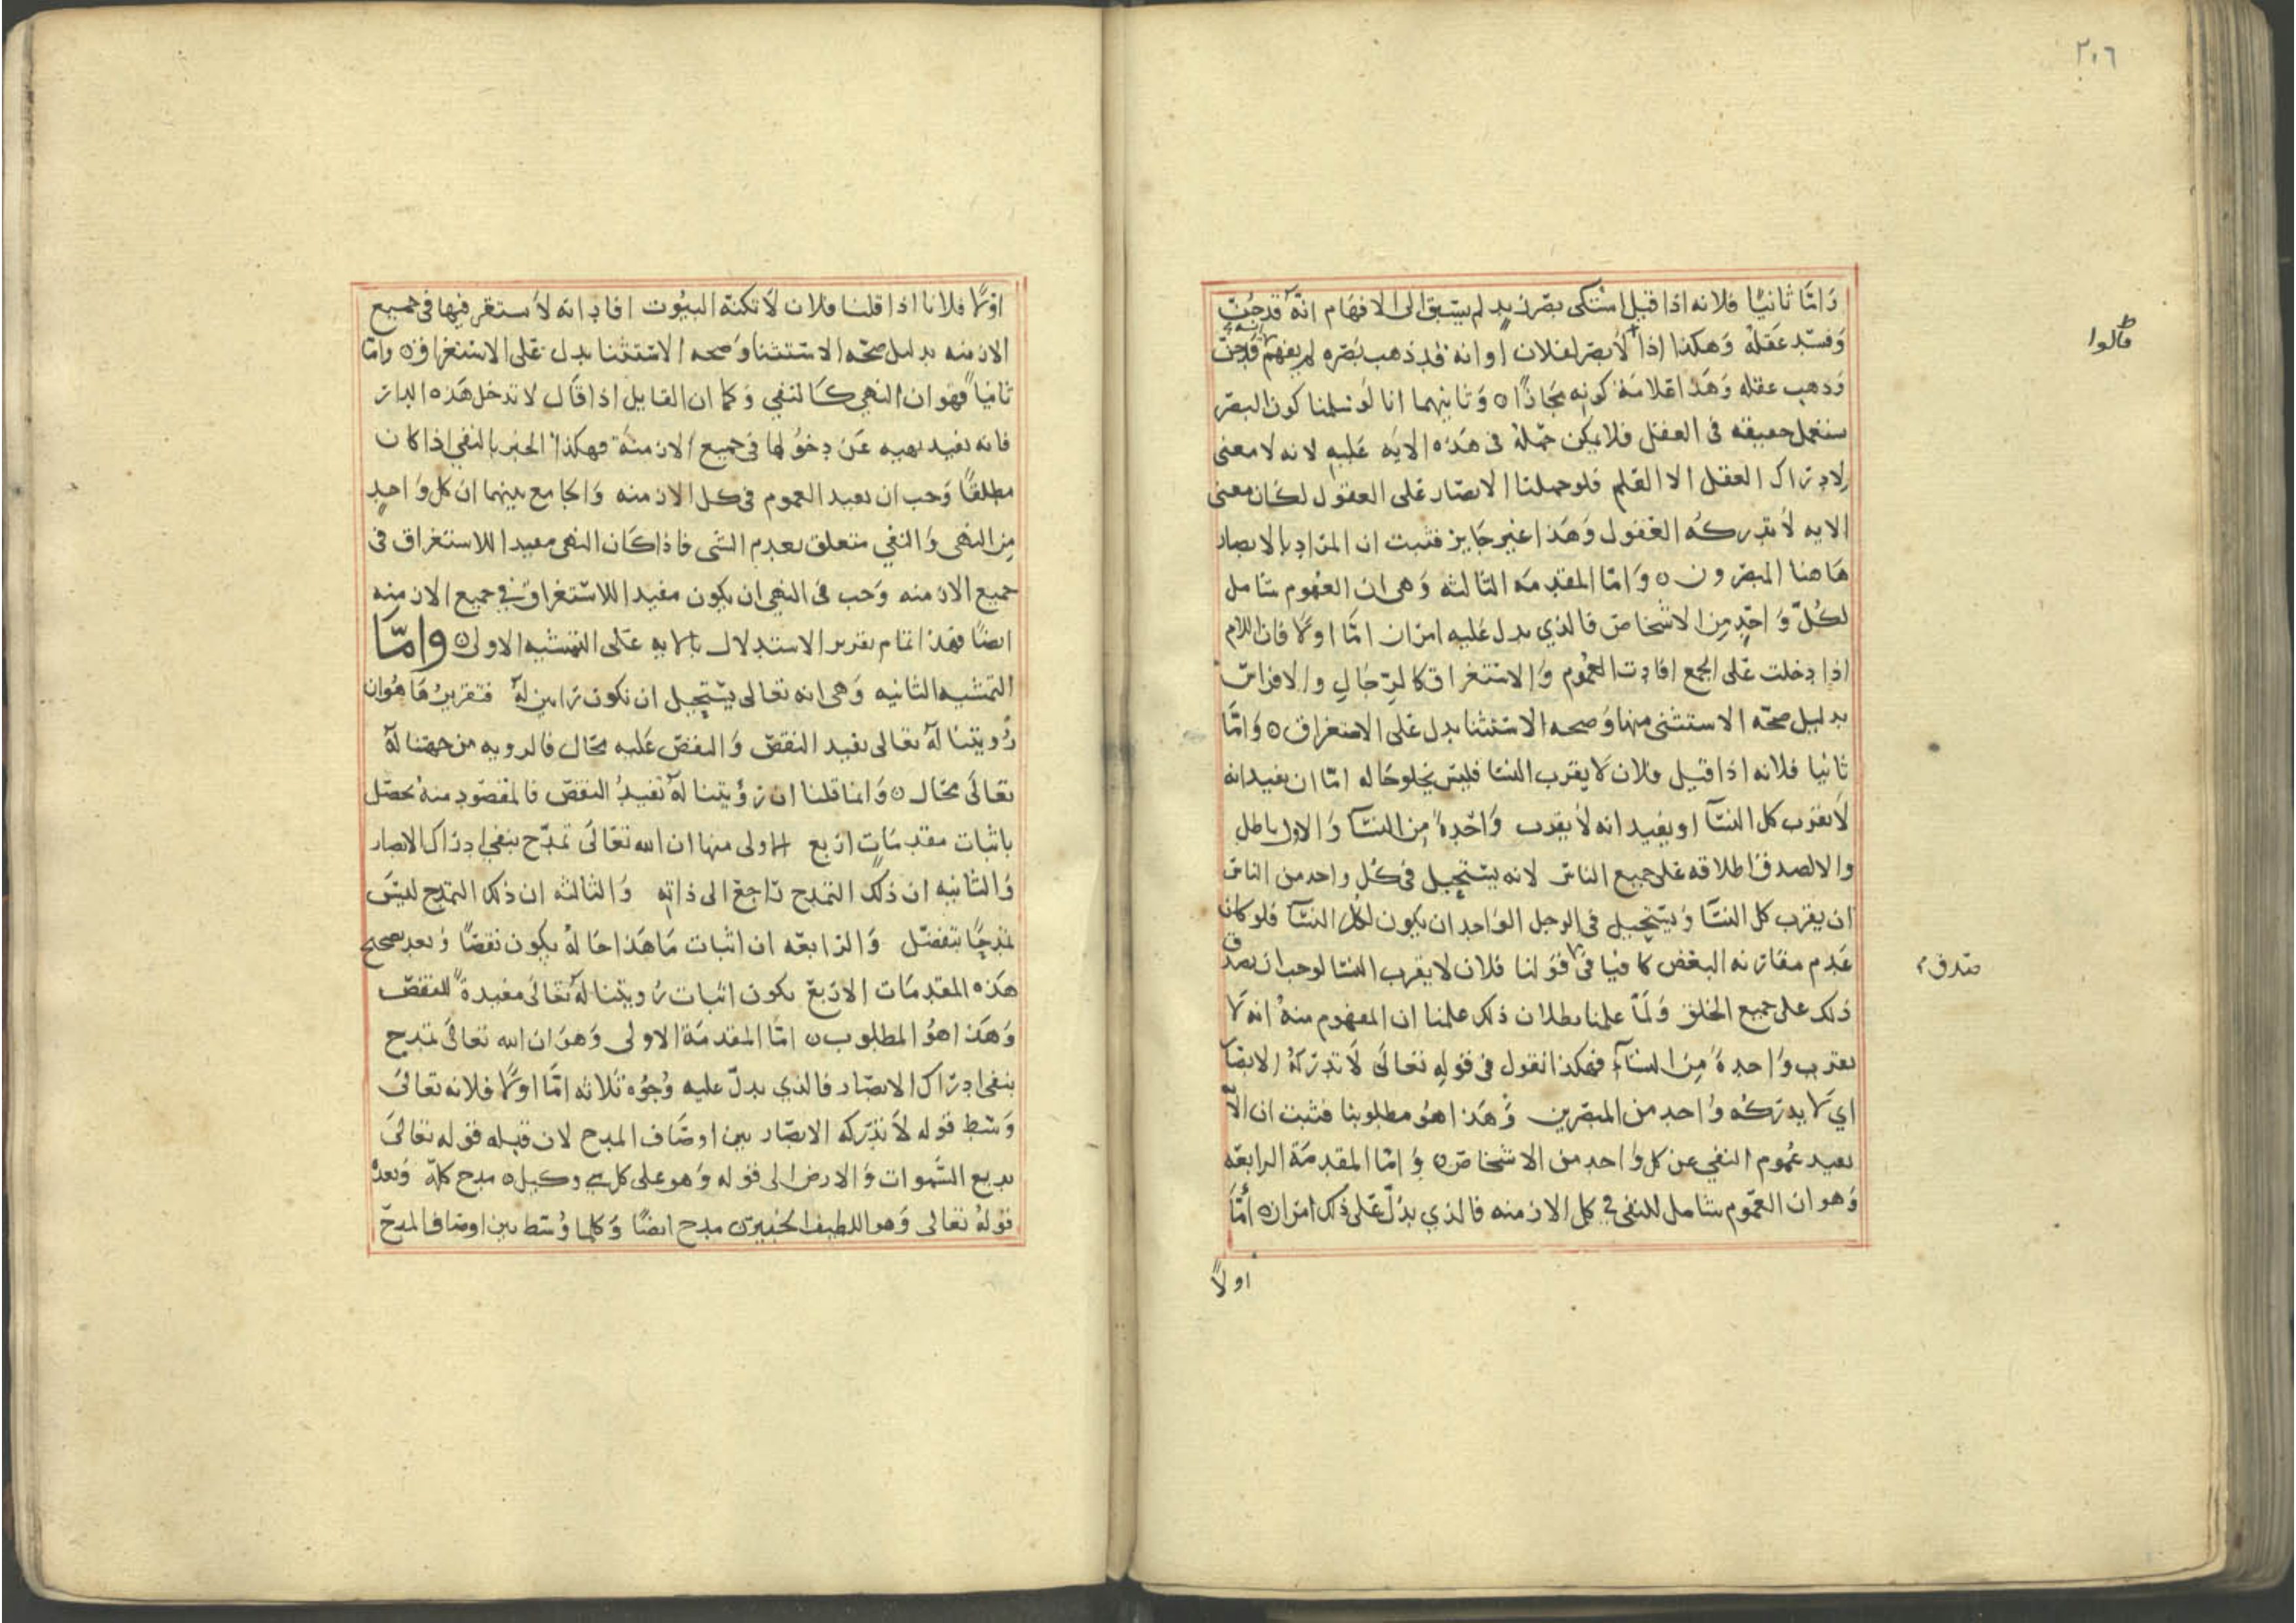 ٢٠٦
وَامَّا ثانيًا فلانه اذا قيل اشتكى بصر زيد لم يسبق الى الافهام انّه قد جُنّ
وَفسد عقله وَهكذا اذا لا بصر لفلان او انه قد ذهب بصره لم يفهم انه قد جن
قالوا
وَذهب عقله وَهَذا علامَة كونه مجازًا ٥ وَثانيهما انا لو سلمنا كون البصر
مستعمل حقيقه فى العقل فلا يمكن حمله فى هَذه الايَه عَليه لانه لا معنى
لادراك العقل الا العلم فلو حملنا الابصار على العقول لكان معنى
الايه لا تدركه العقول وَهَذا غير جَايز فثبت ان المراد بالابصار
هَاهنا المبصرون ٥ وَامّا المقدمَه الثالثه وَهى ان العموم شامل
لكُلّ وَاحِدٍ مِن الاشخاص فالذي يدل عَليه امران امَّا اولًا فان اللام
اذا دخلت عَلى الجمع افادت العمُوم وَالاستغراق كالرجَال والافراس
بدليل صحّه الاستثنى منها وَصحه الاستثنا يدل عَلى الاستغراق ٥ وَامَّا
ثانيا فلانه اذا قيل فلان لا يقرب النسا فليس يخلو حَاله امّا ان يفيد انه
لا يقرب كل النسَآ او يفيد انه لا يقرب وَاحدةً مِن النسَآ وَالاول باطل
والا لصدق اطلاقه عَلى جميع الناس لانه يستحيل فى كل واحد من الناس
ان يقرب كل النسَآ وَيستحيل فى الرجل الوَاحد ان يكون لكل النسَآ فلو كان
عَدم مقارنه البعض كافيا فى قولنا فلان لا يقرب النسا لوجب ان يصدق
صدق
ذلك على جميع الخلق وَلَمّا علمنا بطلان ذلك علمنا ان المفهوم منهُ انه لا
يقرب وَاحدةً مِن النسَآء فهكذا نقول فى قوله تعالَى لا تدركهُ الابصَار
اي لا يدركُه وَاحد من المبصرين وَهَذا هوَ مطلوبنا فثبت ان الايه
تفيد عُموم النفي عن كل وَاحد من الاشخاص ٥ وَامّا المقدمَة الرابعَه
وَهو ان العمَوم شامل للنفي فى كل الازمنه فالذي يدلّ عَلى ذلك امران ٥ أمَّا
اولًا
اولًا فلانا اذا قلنا فلان لا تكنه البيُوت افاد انه لا يستقر فيها فى جميع
الازمنه بدليل صحّه الاستثنا وَصحه الاستثنا يدل عَلى الاستغراق ٥ وامّا
ثانيا فهو ان النهي كَالنفي وَكما ان القايل اذا قَال لا تدخل هَذه الدار
فانه يفيد نهيه عَن دخوُلها فى جميع الازمنَة فهكذا الخبر بالنفي اذا كان
مطلقًا وَجب ان يفيد العموم فى كل الازمنه وَالجامع بينهما ان كل وَاحدٍ
مِن النهى وَالنفي متعلق بعدم الشى فاذا كَان النهى مفيدا للاستغراق فى
جميع الازمنه وَجب فى النفي ان يكون مفيدا للاستغراق في جميع الازمنه
ايضًا فهذا تمام تقرير الاستدلال بالايه عَلى التمشيه الاولى ٥ وَامَّا
التمشيه الثانيه وَهى انه تعالى يستحيل ان نكون رَايين لهُ فتقريرُهَا هُوَ ان
رُويتنا لهُ تعَالى تفيد النقص وَالنقص عَليه محَال فالرويه من جهتنا لهُ
تعَالَى محَال ٥ وَانما قلنا ان رؤيتنا لهُ تفيدُ النقص فالمقصُود منهُ يحصل
باثبات مقدمَاتٍ اربع الاولى منها ان الله تعَالَى تمدّح بنفي ادراك الابصار
وَالثانيه ان ذلك التمدح رَاجع الى ذاته وَالثالثه ان ذلك التمدح ليسَ
تمدحًا بتفضّل وَالرابعَه ان اثبات مَا هَذا حَالهُ يكون نقصًا وَبعد تصحيح
هَذه المقدمَات الاربع يكون اثبات رُويتنا لهُ تعَالَى مفيدةً للنقص
وَهَذا هوُ المطلوب ٥ امّا المقدمَة الاولى وَهوَ ان الله تعَالَى تمدح
بنفى ادرَاك الابصَار فالذي يدلّ عليه وُجُوه ثلاثه امَّا اولًا فلانه تعَالى
وَسّط قوله لا تدركه الابصَار بين اوصَاف المدح لان قبله قوله تعَالَى
بديع السَّموات وَالارض الى قوله وَهو على كل شي وكيل ٥ مدح كلهّ وَبعدهُ
قولهُ تعَالى وَهو اللطيف الخبير ٥ مدح ايضًا وَكلما وُسّط بين اوصَاف المدح